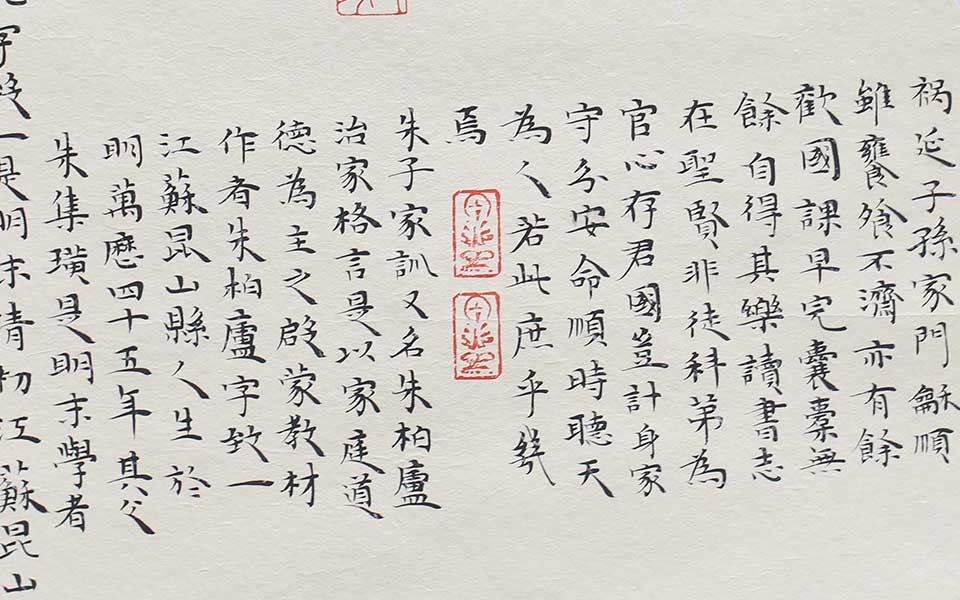 祸延子孫家門龢順
雖饔飧不濟亦有餘
歡國課早完囊橐無
餘自得其樂讀書志
在聖賢非徒科第為
官心存君國豈計身家
守分安命順時聽天
為人若此庶乎幾
焉
朱子家訓又名朱柏廬
治家格言是以家庭道
德為主之啟蒙教材
作者朱柏廬字致一
江蘇昆山縣人生於
明萬曆四十五年其父
朱集璜是明末學者
字致一是明末清初江蘇昆山